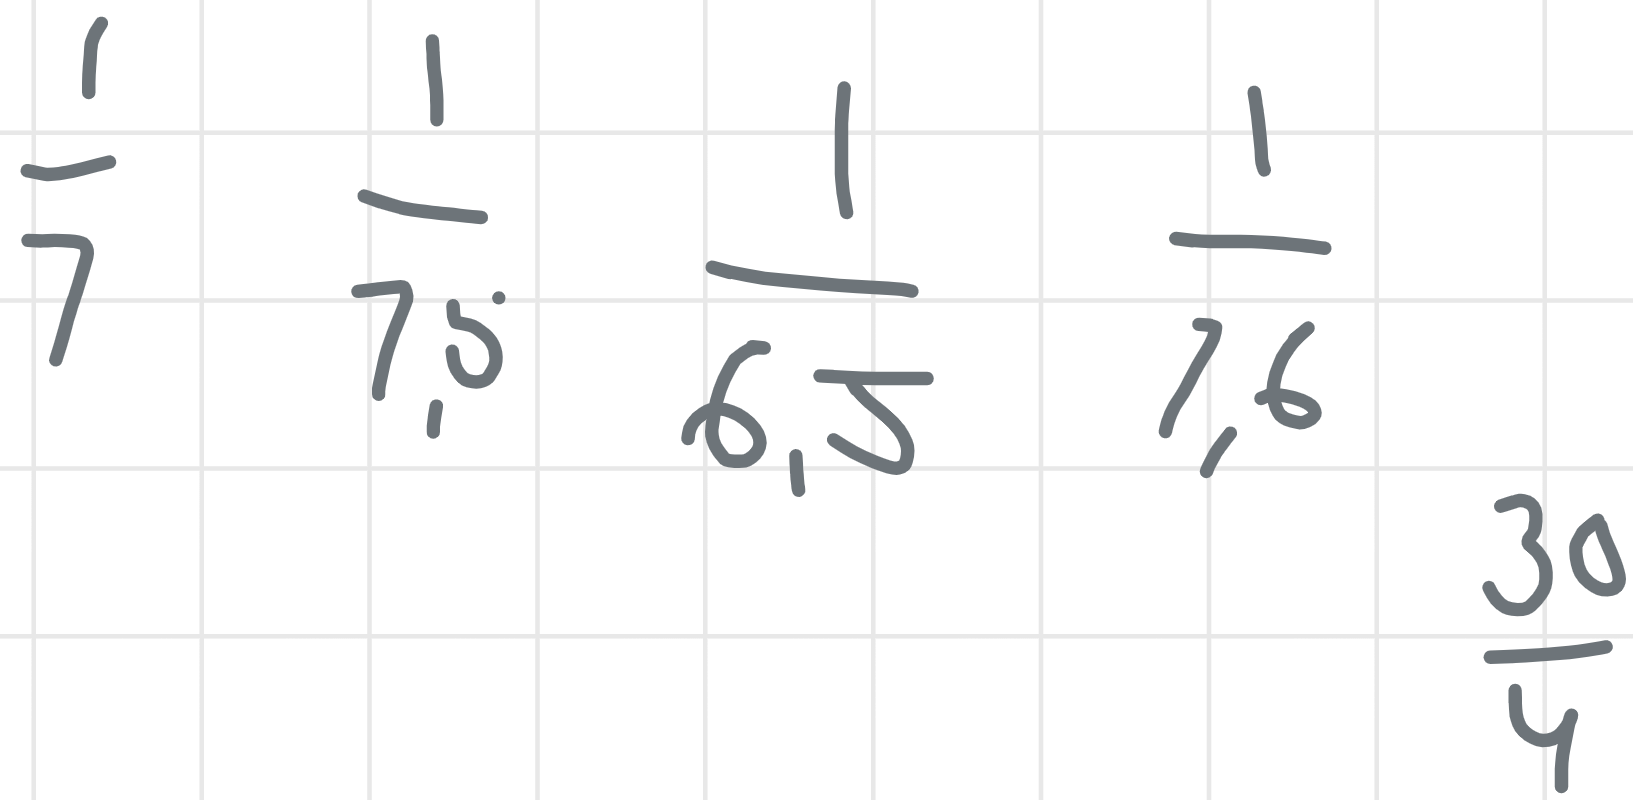 1/7 1/7,5 1/6,5 1/7,6
30/4